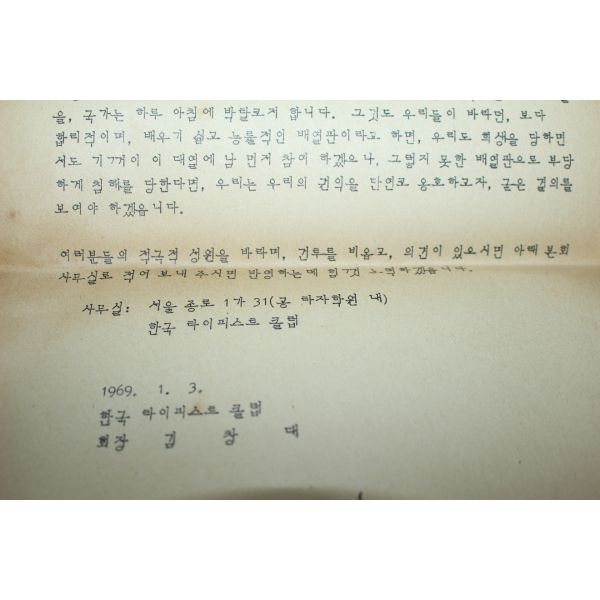 을, 국가는 하루 아침에 박탈코저 합니다. 그것도 우리들이 바라던, 보다
합리적이며, 배우기 쉽고 능률적인 배열판이라고 하면, 우리도 희생을 당하면
서도 기꺼이 이 대열에 남 먼저 참여 하겠으나, 그렇지 못한 배열판으로 부당
하게 침해를 당한다면, 우리는 우리의 권익을 단연코 옹호하고자, 굳은 결의를
보여야 하겠읍니다.
여러분들의 적극적 성원을 바라며, 건투를 비옵고, 의견이 있으시면 아래 본회
사무실로 적어 보내 주시면 반영하는데 힘껏 노력하겠읍니다.
사무실: 서울 종로 1가 31(공 타자학원 내)
한국 타이피스트 클럽
1969. 1. 3.
한국 타이피스트 클럽
회장 김 창 대